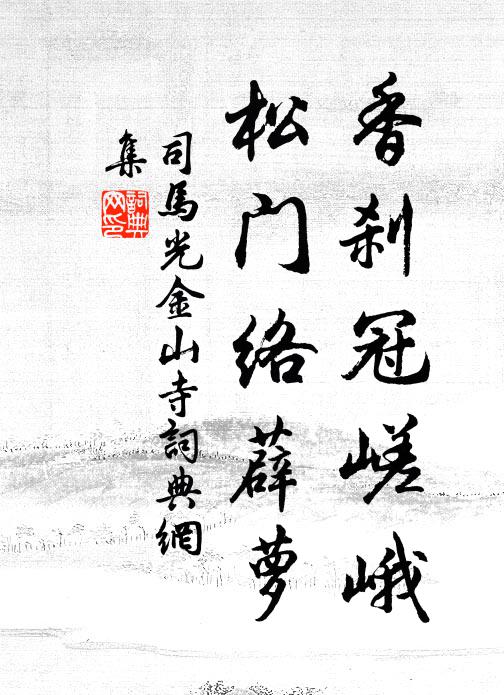 香刹冠嵯峨
松門络薜萝
司馬光金山寺詞典網
集
詞典
网印